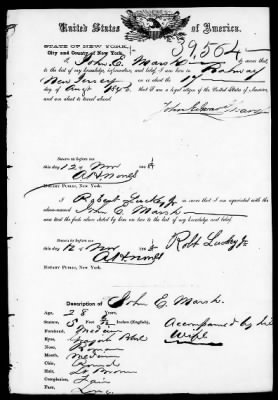 United States of America.
39564
STATE OF NEW YORK,
City and County of New York,
I, John E. Marsh do swear that,
to the best of my knowledge, information, and belief, I was born in Rahway
New Jersey on or about the 17th
day of Aug 1846 that I am a legal citizen of the United States of America,
and am about to travel abroad.
Sworn to before me
this 12 Nov 18
NOTARY PUBLIC, New York.
I, Robert Lucky Jr do swear that I am acquainted with the
above-named John E. Marsh and
that the facts above stated by him are true to the best of my knowledge and belief.
Sworn to before me
this 12 Nov 18
Robt Lucky Jr
NOTARY PUBLIC, New York.
Description of John E. Marsh.
Age, 28
Stature, 5 Inches (English),
Accompanied by his
Wife
Forehead, Medium
Eyes,
Nose,
Mouth, Medium
Chin, Round
Hair, Lt Brown
Complexion, Fair
Face, Long